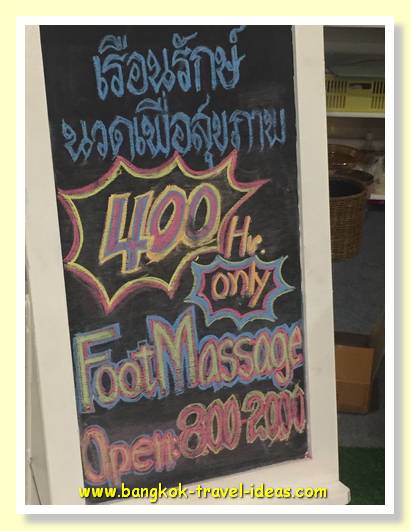 เรือนรักษ์
นวดเพื่อสุขภาพ
400
Hr.
only
Foot Massage
Open:800-2000
www.bangkok-travel-ideas.com